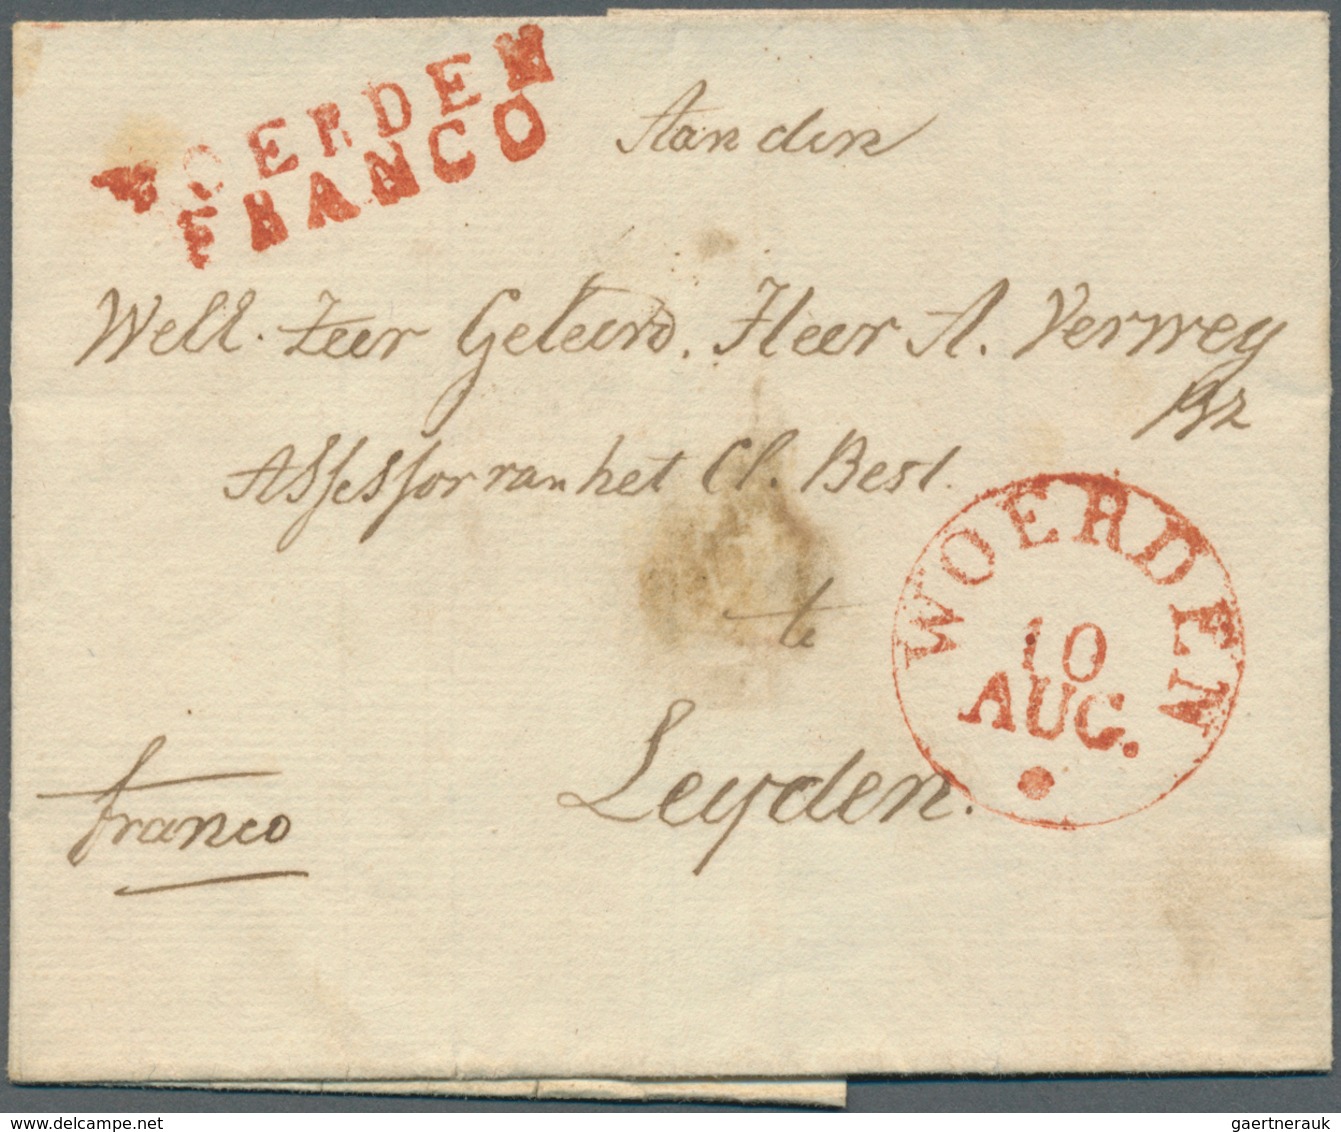 WOERDEN
FRANCO
Aan den
Well. Zeer Geleerd. Heer A. Verweij
Assessor van het Cl. Best.
te
Leyden.
franco
WOERDEN
10
AUG.
delcampe.net
gaertnerauk